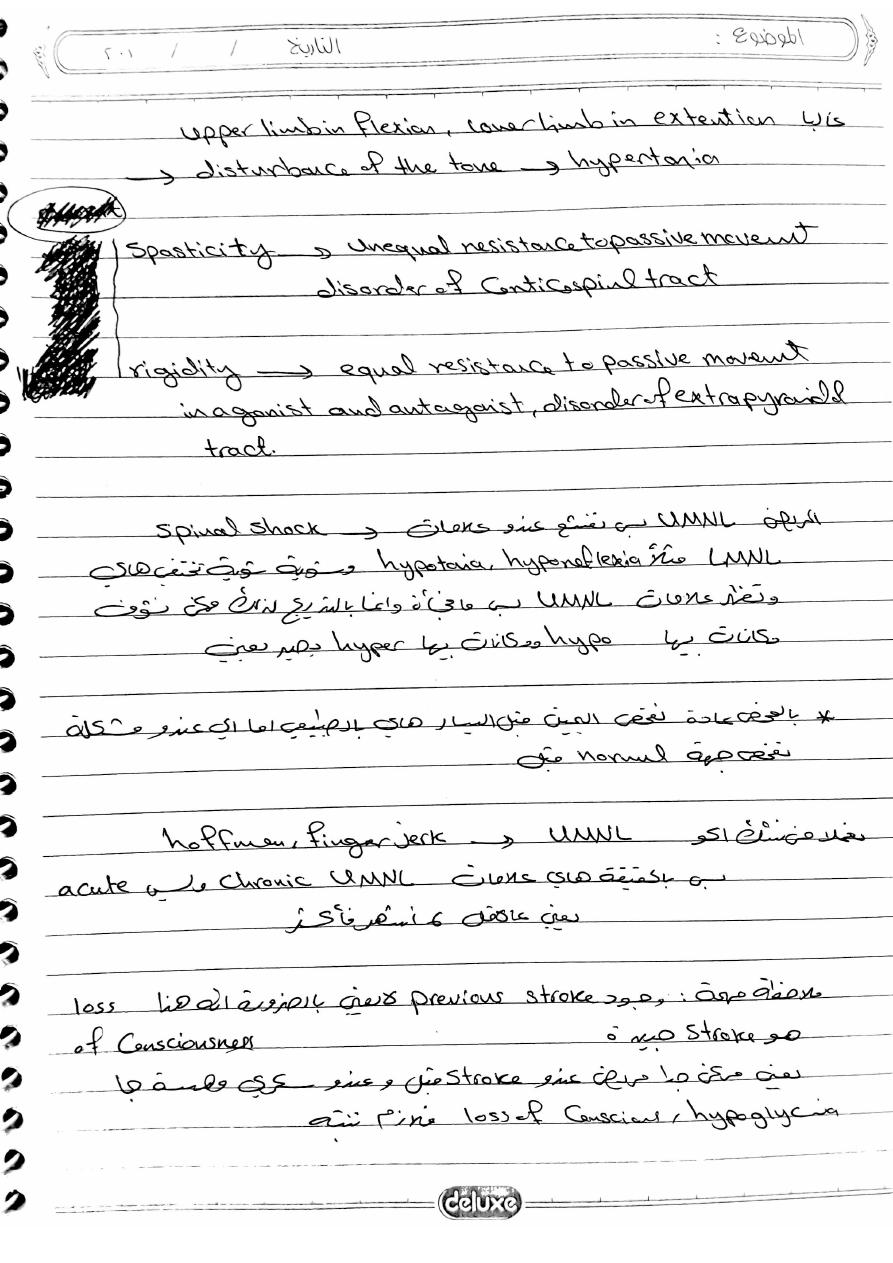 الموضوع :
التاريخ / / ٢٠١
upper limb in flexion, lower limb in extention غالبا
→ disturbance of the tone → hypertonia
Spasticity → unequal resistance to passive movemnt
disorder of Corticospinl tract
rigidity → equal resistance to passive movemnt
in agonist and antagoist, disorder of extrapyramidal
tract.
المريض UMNL بس تفتقد عندو علامات → Spinal shock
LMNL مثلاً hypotonia, hyporeflexia وشوية شوية تختفي هاي
وتظهر علامات UMNL بس ما فجأة وانما بالتدريج لذلك ممكن نشوف
مكانات بيها hypo ومكانات بيها hyper بصير يعني
* بالفحص عادة نفحص اليمين قبل اليسار هاي بالطبيعي اما الي عندو مشكلة
نفحص جهة normal قبل
UMNL → hoffman, finger jerk
بس بالحقيقة هاي علامات chronic UMNL وليس acute
يعني عالاقل ٦ أشهر فأكثر
ملاحظة مهمة : وجود previous stroke لا يعني بالضرورة انه هنا loss
of Consciousness هو stroke جديدة
يعني ممكن جا مريض عندو stroke قبل وعندو سكري وهسة جا
loss of Conscious, hypoglycmia فلازم ننتبه
deluxe